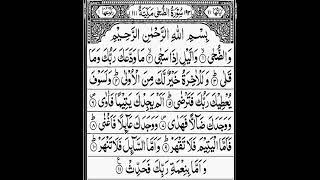 سُوْرَةُ الضُّحٰى
بِسْمِ اللهِ الرَّحْمٰنِ الرَّحِيْمِ
وَالضُّحٰى ۙ وَالَّيْلِ اِذَا سَجٰى ۙ مَا وَدَّعَكَ رَبُّكَ وَمَا
قَلٰى ؕ وَلَلْاٰخِرَةُ خَيْرٌ لَّكَ مِنَ الْاُوْلٰى ؕ وَلَسَوْفَ
يُعْطِيْكَ رَبُّكَ فَتَرْضٰى ؕ اَلَمْ يَجِدْكَ يَتِيْمًا فَاٰوٰى ۪
وَوَجَدَكَ ضَآلًّا فَهَدٰى ۪ وَوَجَدَكَ عَآئِلًا فَاَغْنٰى ؕ
فَاَمَّا الْيَتِيْمَ فَلَا تَقْهَرْ ؕ وَاَمَّا السَّآئِلَ فَلَا تَنْهَرْ ؕ
وَاَمَّا بِنِعْمَةِ رَبِّكَ فَحَدِّثْ ۱۱